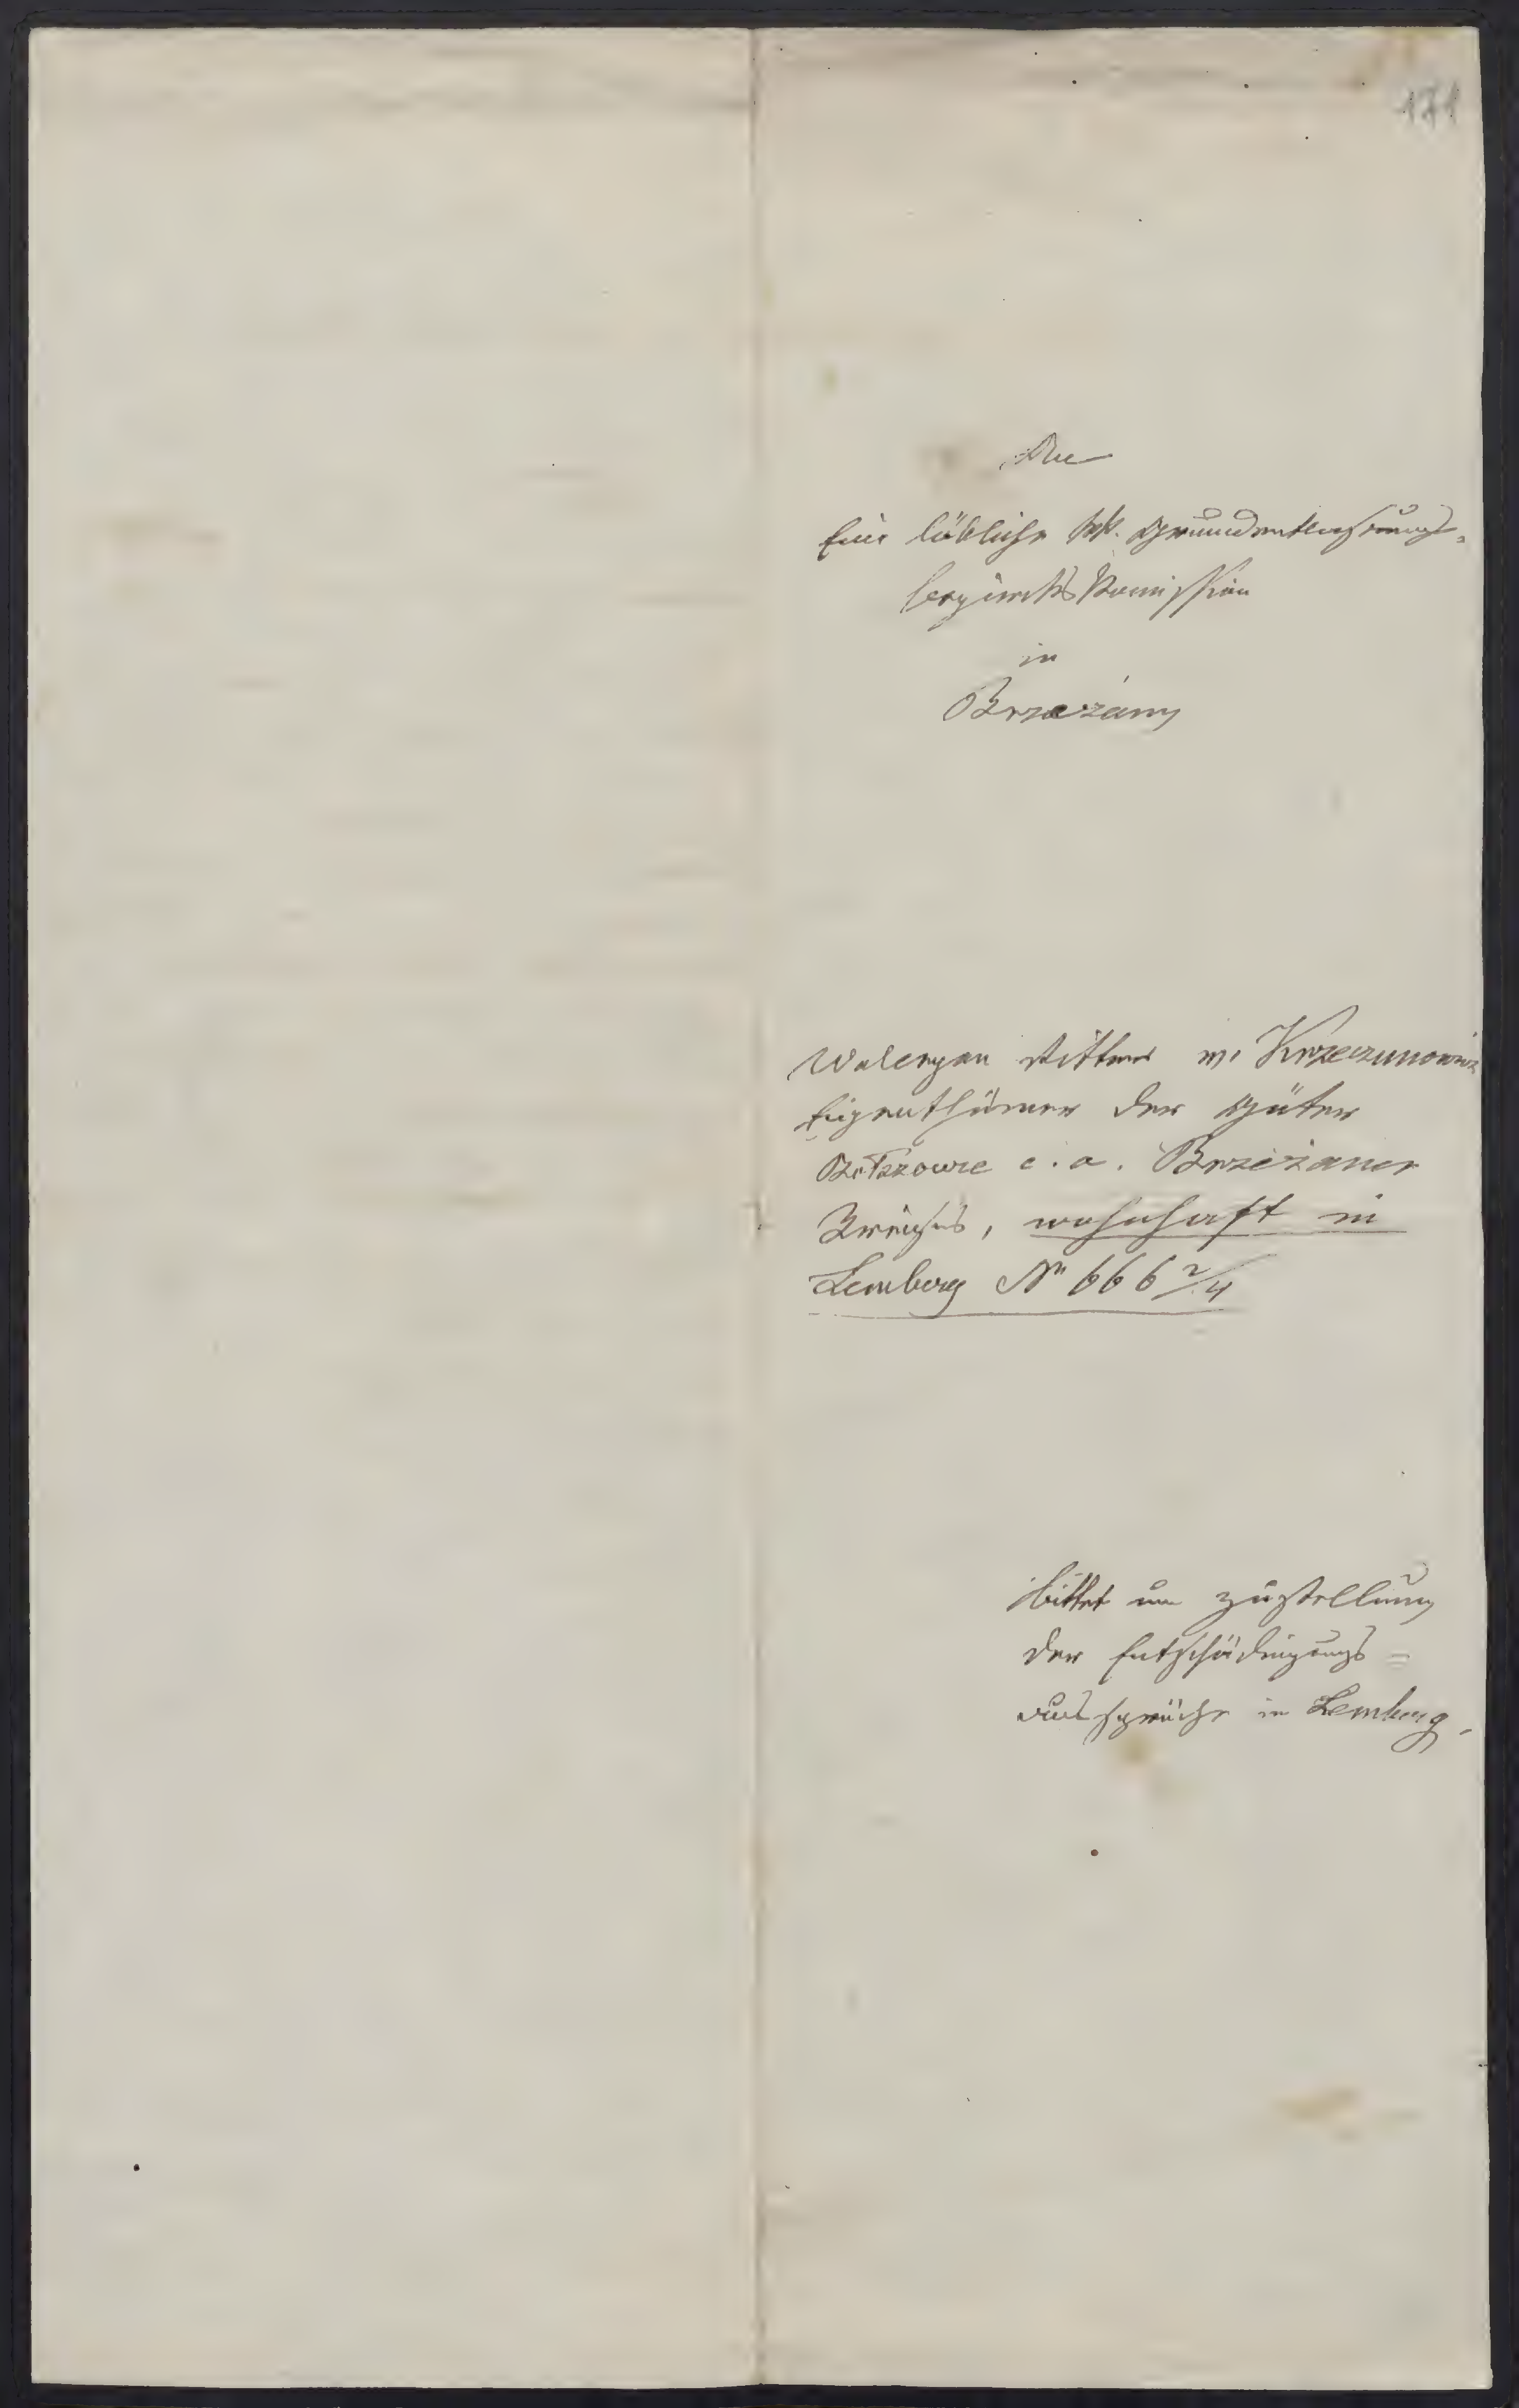 171
An
Eine löbliche k.k. Grundentlastungs-
bezirks Komission
in
Brzeżany
Waleryan Ritter v. Krzeczunowicz
Eigenthümer der Güter
c. a. Brzeżaner
Kreises, wohnhaft in
Lemberg No 666 2/4
bittet um Zustellung
der Entschädigungs=
aussprüche in Lemberg.